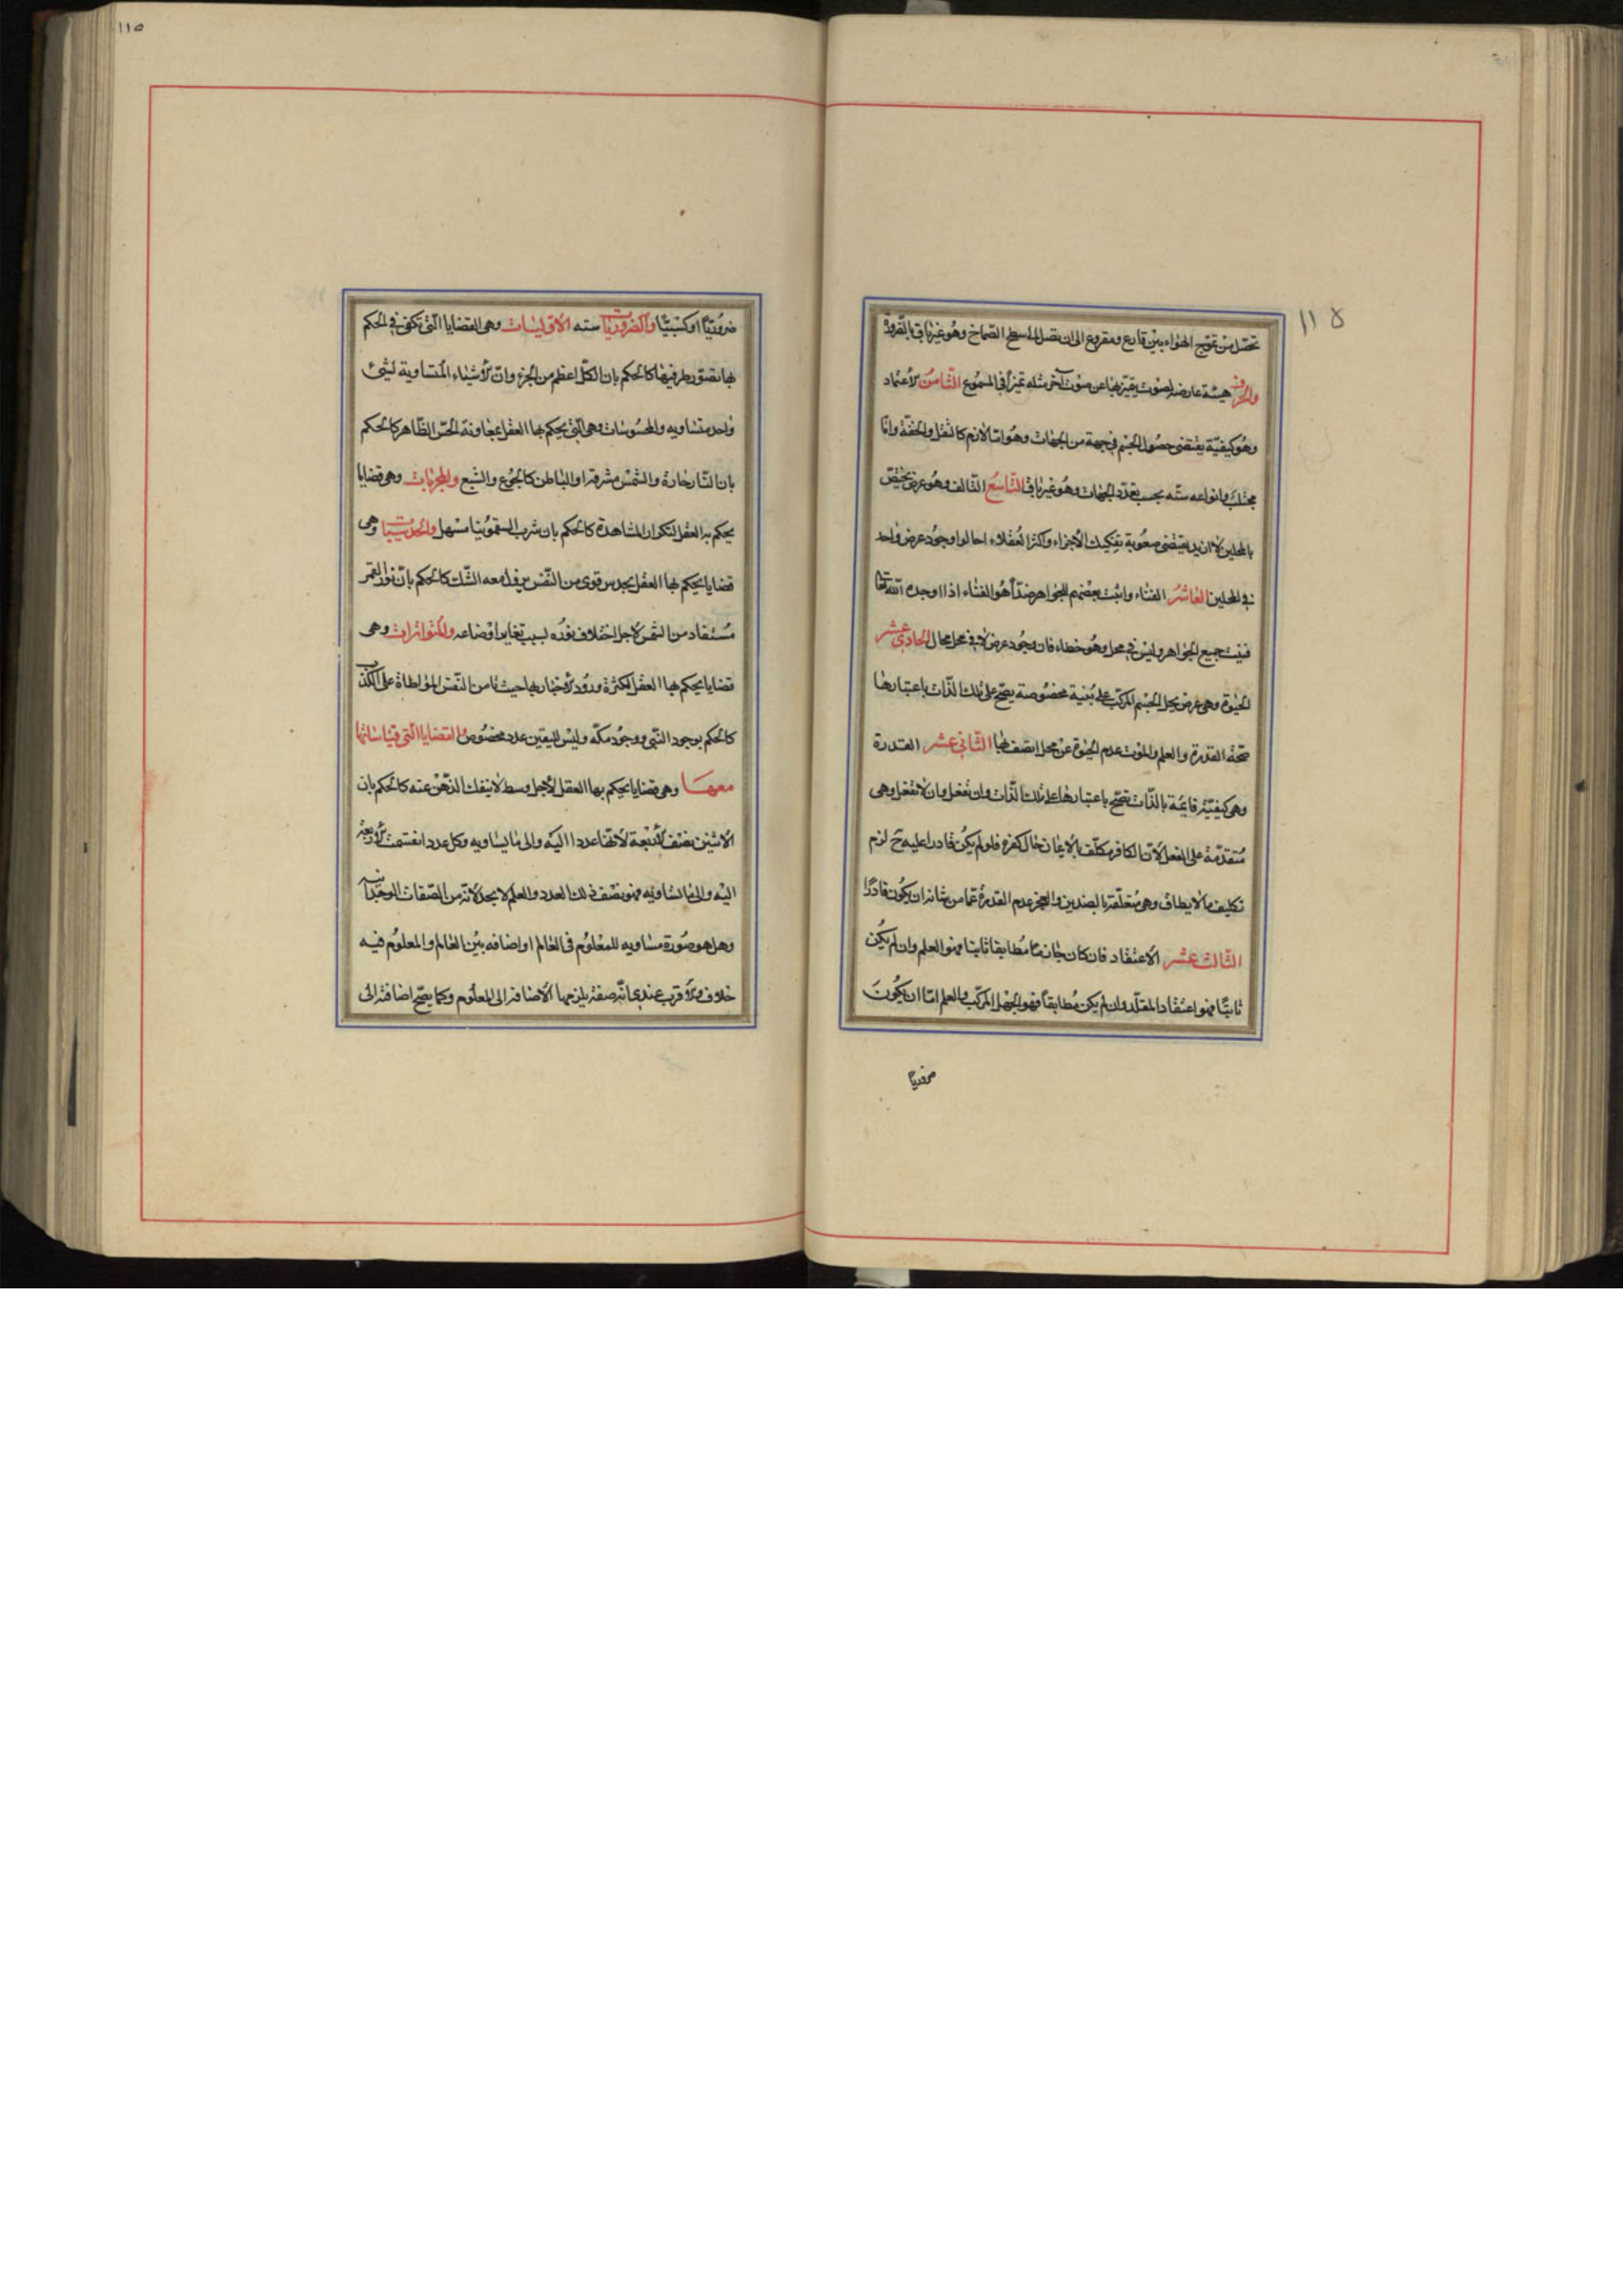 ١١٥
تحصل من تموج الهواء بين قارع ومقروع الى ان يصل الى سطح الصماخ وهو غير باق بالضرورة
والحرف هيئة عارضة لصوت يتميز بها عن صوت آخر مثله تميزاً فى المسموع الثامن الاعتماد
وهو كيفيّة يقتضى حصول الجسم فى جهة من الجهات وهو امّا لازم كالثقل والخفّة وامّا
مجتلب وانواعه ستّه بحسب تعدّد الجهات وهو غير باق التّاسع التالف وهو عرض يختصّ
بالمحلين لا ازيد يقتضى صعوبة تفكيك الأجزاء واكثر العقلاء احالوا وجود عرض واحد
فى المحلين العاشر الفناء واثبت بعضهم للجواهر ضدّاً هو الفناء اذا اوجده اللّه تعالى
فنيت جميع الجواهر وليس فى محل وهو خطاء فان وجود عرض لا فى محل محال الحادى عشر
الحيوة وهى عرض يحل الجسم المركّب على بُنية مخصوصة يصحّ على تلك الذّات باعتبارها
صحّة القدرة والعلم والموت عدم الحيوة عن محل اتصف بها الثّانى عشر القدرة
وهى كيفيّة قايمة بالذّات تصحّ باعتبارها على تلك الذّات وان تفعل وان لا تفعل وهى
متقدّمة على الفعل لانّ الكافر مكلّف بالايمان حال كفره فلو لم يكن قادرا عليه ح لزم
تكليف ما لا يطاق وهى متعلّقة بالضدين والعجز عدم القدرة عمّا من شانه ان يكون قادرًا
الثّالث عشر الاعتقاد فان كان جازما مطابقا ثابتا فهو العلم وان لم يكن
ثابتًا فهو اعتقاد المقلّد وان لم يكن مطابقاً فهو الجهل المركّب والعلم امّا ان يكون
ضروريا
١١٥
ضروريًّا او كسبيًّا والضروريّات سته الاوّليات وهى القضايا الّتى تكفى فى الحكم
بها تصوّر طرفيها كالحكم بان الكلّ اعظم من الجزء وانّ الأشياء المتساوية لشئ
واحد متساويه والمحسوسات وهى الّتى يحكم بها العقل بمعاونة الحسّ الظّاهر كالحكم
بان النّار حارة والشّمس مشرقة او الباطن كالجوع والشبع والمجرّبات وهى قضايا
يحكم بها العقل لتكرار المشاهدة كالحكم بان شرب السقمونيا مسهل والحدسيّات وهى
قضايا يحكم بها العقل بحدس قوى من النّفس يزول معه الشّك كالحكم بانّ نور القمر
مستفاد من الشّمس لاجل اختلاف نوره بسبب تغاير اوضاعه والمتواترات وهى
قضايا يحكم بها العقل لكثرة ورود الاخبار بها حيث تامن النّفس المواطاة على الكذب
كالحكم بوجود النّبى ووجود مكّه وليس لليقين عدد مخصوص والقضايا الّتى قياساتها
معها وهى قضايا يحكم بها العقل لأجل وسط لا ينفك الذّهن عنه كالحكم بان
الاثنين نصف الأربعة لأنها عدد انقسمت الأربعة
اليه والى ما يساويه فهو نصف ذلك العدد والعلم لا يحد لانّه من الصّفات الوجدانية
وهل هو صورة مساويه للمعلوم فى العالم او اضافه بين العالم والمعلوم فيه
خلاف والأقرب عندى انّه صفة يلزمها الاضافة الى المعلوم وكما يصحّ اضافة الى